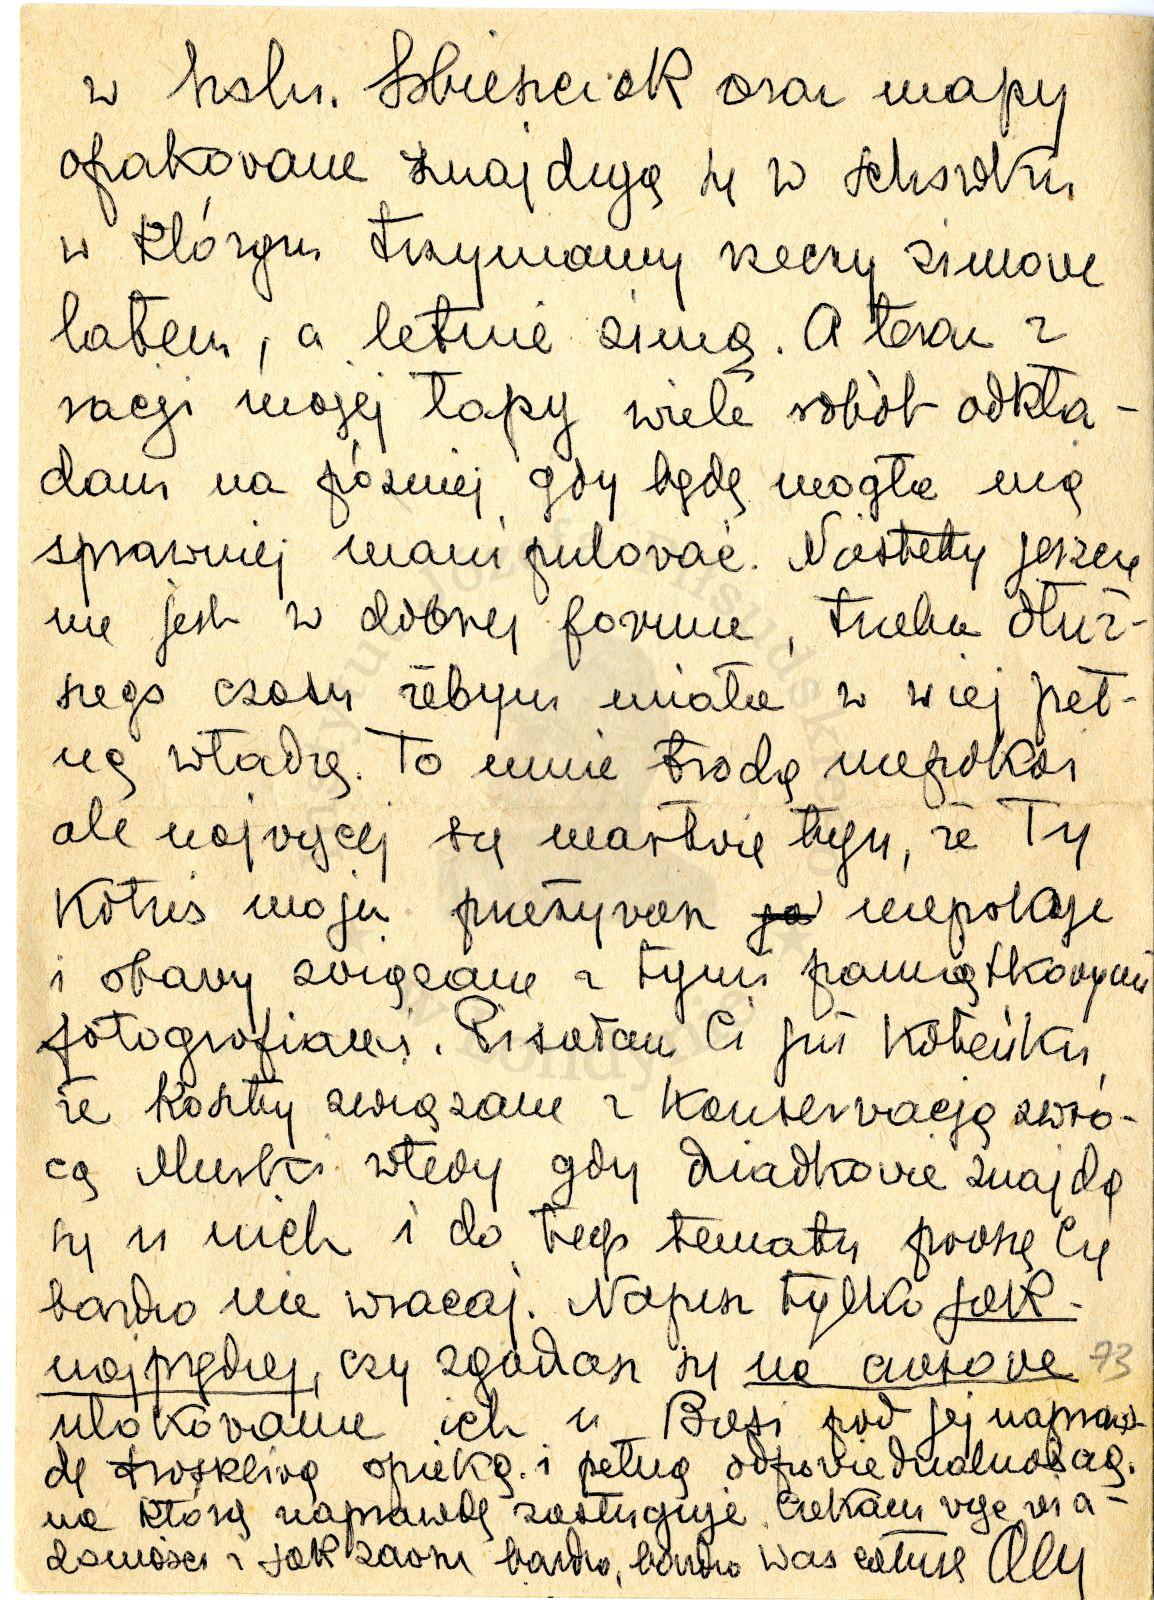 w kolor. Sobieszczok oraz mapy
opakowane znajdują się w schowku
w którym trzymamy rzeczy zimowe
latem, a letnie zimą. A teraz z
racji mojej łapy wiele robót odkła-
dam na później gdy będę mogła nią
sprawniej manipulować. Niestety jeszcze
nie jest w dobrej formie, trzeba dłuż-
szego czasu żebym miała w niej peł-
ną władzę. To mnie trochę niepokoi
ale najwięcej się martwię tym, że Ty
Kotuś moja przeżywasz niepokoje
i obawy związane z tymi pamiątkowymi
fotografiami. Pisałam Ci już Koteńku,
że koszty związane z konserwacją zwró-
cą Muski wtedy gdy dziadkowie znajdą
się u nich i do tego tematu proszę Cię
bardzo nie wracaj. Napisz tylko jak-
najprędzej, czy zgadzasz się na czasowe 73
ulokowanie ich u Basi pod jej napraw-
dę troskliwą opieką i pełną odpowiedzialnością.
na którą naprawdę zasługuje. Czekam więc wia-
domości i jak zawsze bardzo, bardzo was całuję Ola